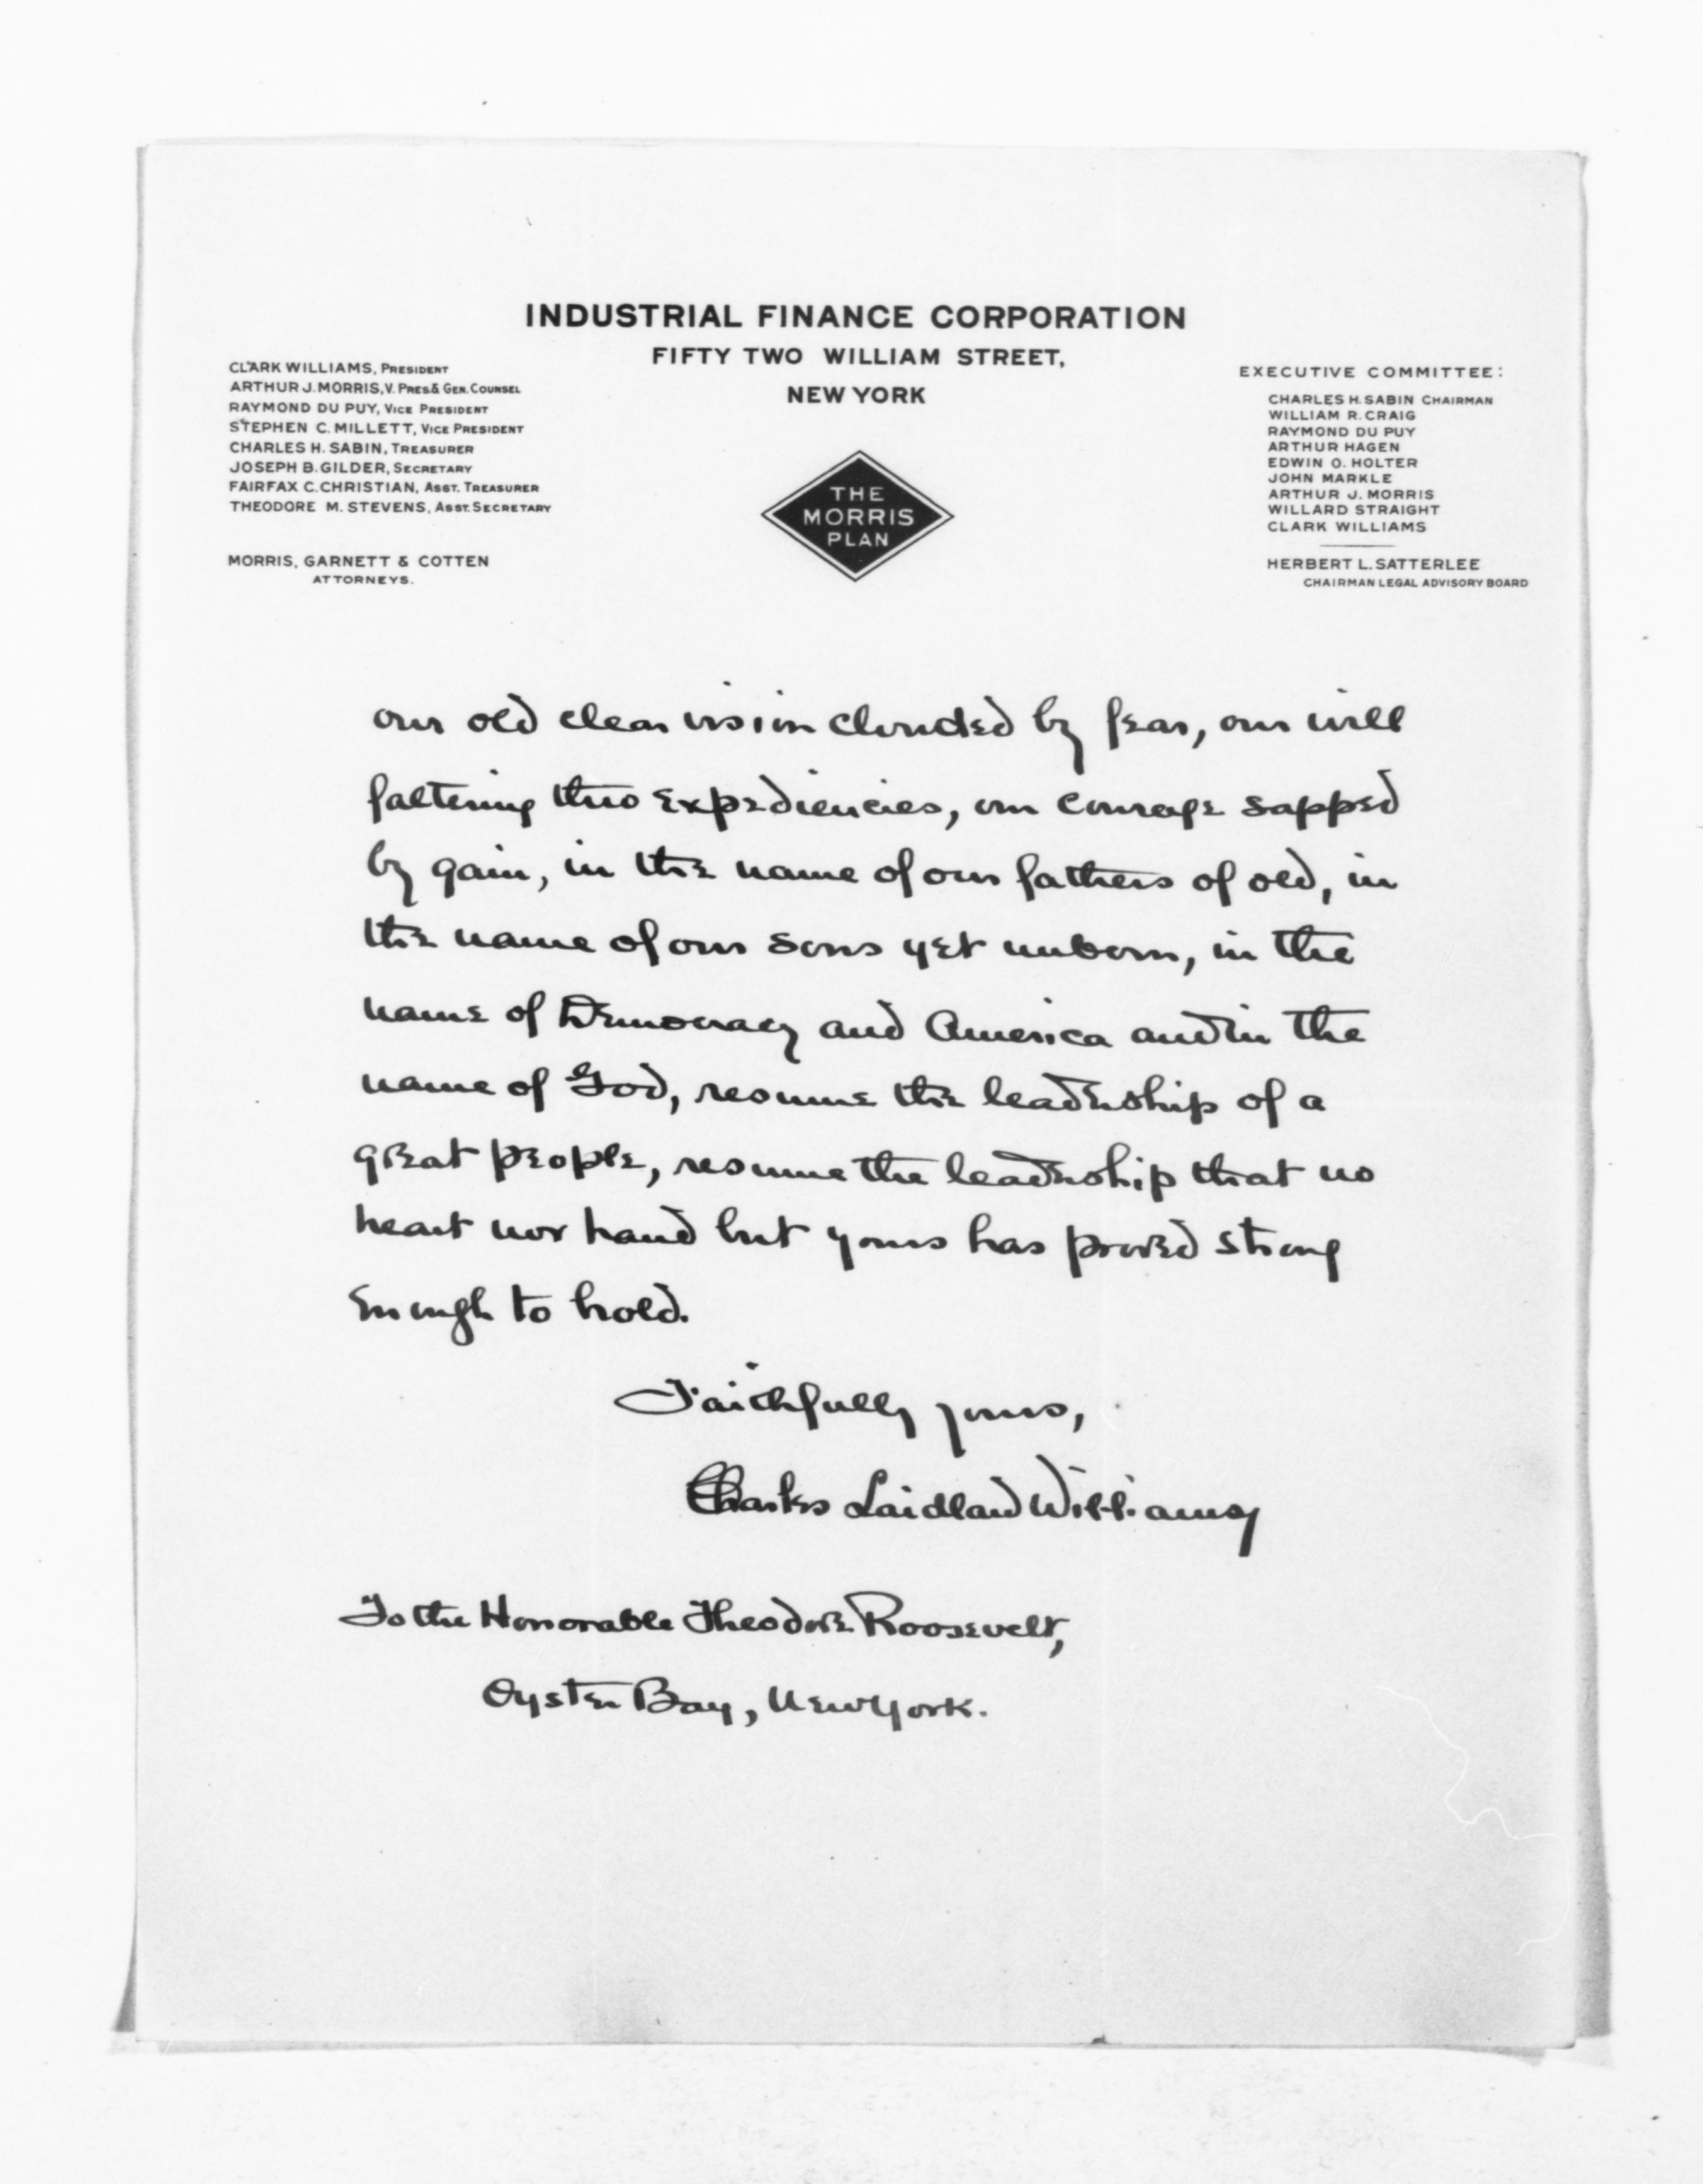 INDUSTRIAL FINANCE CORPORATION
FIFTY TWO WILLIAM STREET,
NEW YORK
CLARK WILLIAMS, PRESIDENT
ARTHUR J. MORRIS, V. PRES. & GEN. COUNSEL
RAYMOND DU PUY, VICE PRESIDENT
STEPHEN C. MILLETT, VICE PRESIDENT
CHARLES H. SABIN, TREASURER
JOSEPH B. GILDER, SECRETARY
FAIRFAX C. CHRISTIAN, ASST. TREASURER
THEODORE M. STEVENS, ASST. SECRETARY
MORRIS, GARNETT & COTTEN
ATTORNEYS.
THE
MORRIS
PLAN
EXECUTIVE COMMITTEE:
CHARLES H. SABIN CHAIRMAN
WILLIAM R. CRAIG
RAYMOND DU PUY
ARTHUR HAGEN
EDWIN O. HOLTER
JOHN MARKLE
ARTHUR J. MORRIS
WILLARD STRAIGHT
CLARK WILLIAMS
HERBERT L. SATTERLEE
CHAIRMAN LEGAL ADVISORY BOARD
our old clear vision clouded by fear, our will
faltering thro expediencies, our courage sapped
by gain, in the name of our fathers of old, in
the name of our sons yet unborn, in the
name of Democracy and America and in the
name of God, resume the leadership of a
great people, resume the leadership that no
heart nor hand but yours has proved strong
enough to hold.
Faithfully yours,
Charles Laidlaw Williams
To the Honorable Theodore Roosevelt,
Oyster Bay, New York.